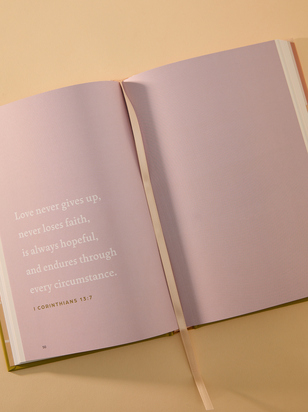 Love never gives up,
never loses faith,
is always hopeful,
and endures through
every circumstance.
1 CORINTHIANS 13:7